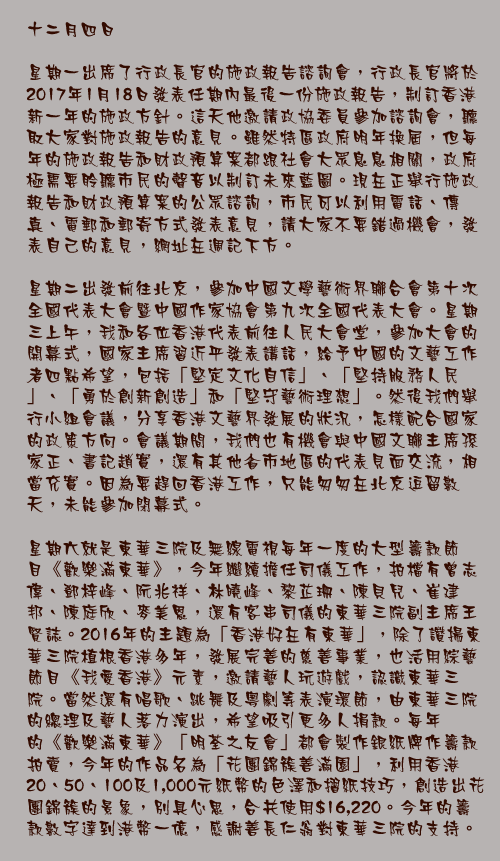 十二月四日
星期一出席了行政長官的施政報告諮詢會，行政長官將於
2017年1月18日發表任期內最後一份施政報告，制訂香港
新一年的施政方針。這天他邀請政協委員參加諮詢會，聽
取大家對施政報告的意見。雖然特區政府明年換屆，但每
年的施政報告和財政預算案都跟社會大眾息息相關，政府
極需要聆聽市民的聲音以制訂未來藍圖。現在正舉行施政
報告和財政預算案的公眾諮詢，市民可以利用電話、傳
真、電郵和郵寄方式發表意見，請大家不要錯過機會，發
表自己的意見，網址在週記下方。
星期二出發前往北京，參加中國文學藝術界聯合會第十次
全國代表大會暨中國作家協會第九次全國代表大會。星期
三上午，我和各位香港代表前往人民大會堂，參加大會的
開幕式，國家主席習近平發表講話，給予中國的文藝工作
者四點希望，包括「堅定文化自信」、「堅持服務人民
」、「勇於創新創造」和「堅守藝術理想」。然後我們舉
行小組會議，分享香港文藝界發展的狀況，怎樣配合國家
的政策方向。會議期間，我們也有機會與中國文聯主席孫
家正、書記趙實，還有其他省市地區的代表見面交流，相
當充實。因為要趕回香港工作，只能匆匆在北京逗留數
天，未能參加閉幕式。
星期六就是東華三院及無線電視每年一度的大型籌款節
目《歡樂滿東華》，今年繼續擔任司儀工作，拍檔有曾志
偉、鄭梓峰、阮兆祥、林曉峰、黎芷珊、陳貝兒、崔建
邦、陳庭欣、麥美恩，還有客串司儀的東華三院副主席王
賢誌。2016年的主題為「香港好在有東華」，除了讚揚東
華三院植根香港多年，發展完善的慈善事業，也活用綜藝
節目《我愛香港》元素，邀請藝人玩遊戲，認識東華三
院。當然還有唱歌、跳舞及粵劇等表演環節，由東華三院
的總理及藝人落力演出，希望吸引更多人捐款。每年
的《歡樂滿東華》「明荃之友會」都會製作銀紙牌作籌款
拍賣，今年的作品名為「花團錦簇善滿園」，利用香港
20、50、100及1,000元紙幣的色澤和摺紙技巧，創造出花
團錦簇的景象，別具心思，合共使用$16,220。今年的籌
款數字達到港幣一億，感謝善長仁翁對東華三院的支持。